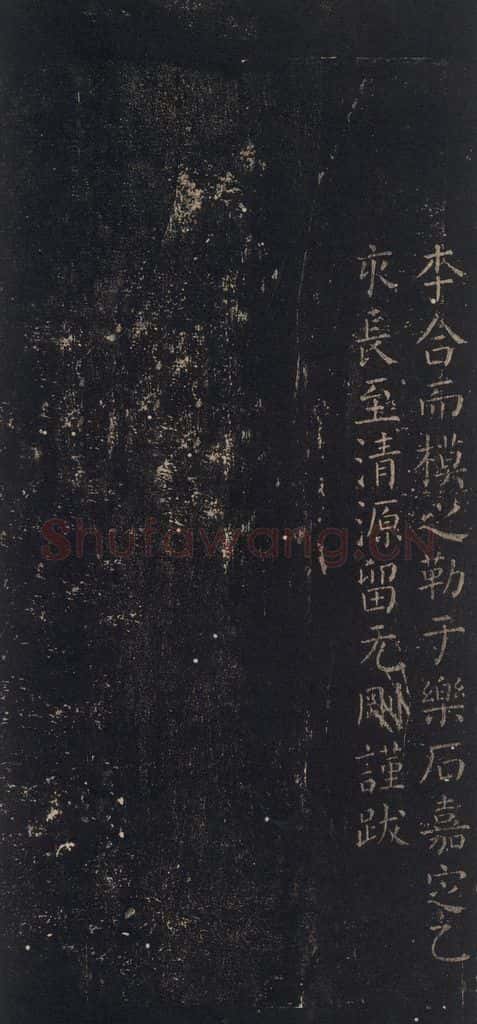 李合而模之勒于樂石嘉定乙
亥長至清源留元剛謹跋
Shufawang.CN